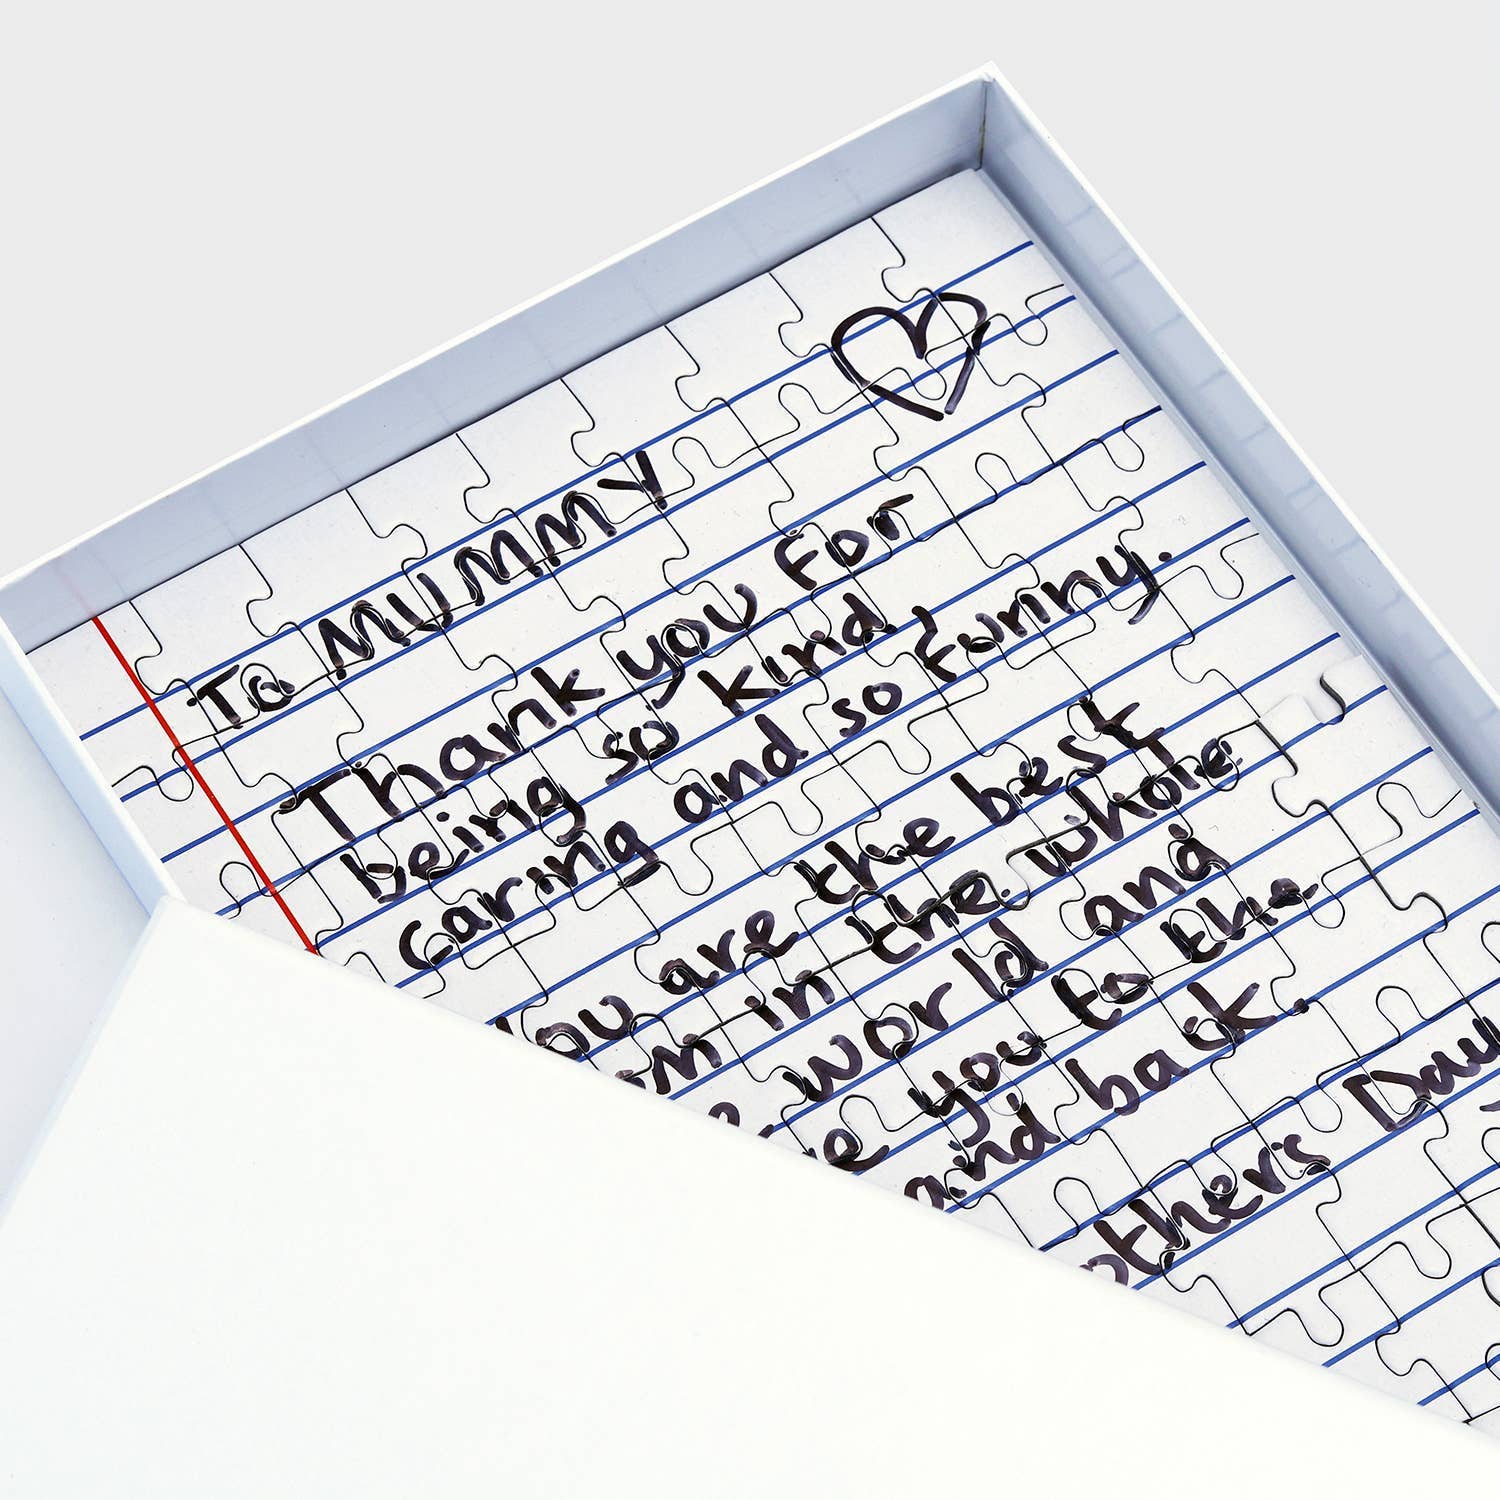 To MUMMY
Thank you for
being so kind
caring and so funny.
you are the best
in the whole
world and
you to the
and back
others Day